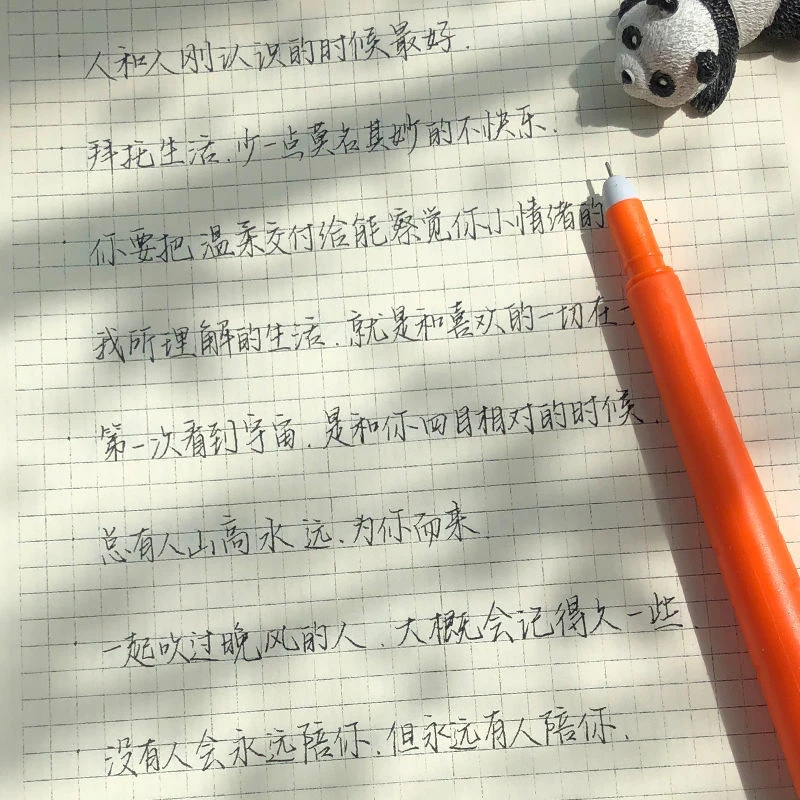 人和人刚认识的时候最好.
拜托生活.少一点莫名其妙的不快乐.
你要把温柔交付给能察觉你小情绪的.
我所理解的生活.就是和喜欢的一切在一
第一次看到宇宙.是和你四目相对的时候.
总有人山高水远.为你而来.
一起吹过晚风的人.大概会记得久一些.
没有人会永远陪你.但永远有人陪你.